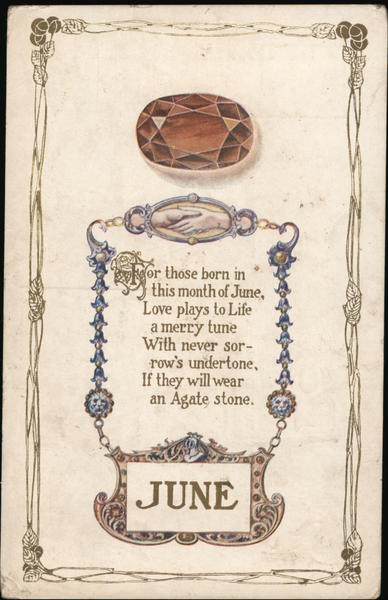 For those born in
this month of June,
Love plays to Life
a merry tune
With never sor-
row's undertone,
If they will wear
an Agate stone.
JUNE